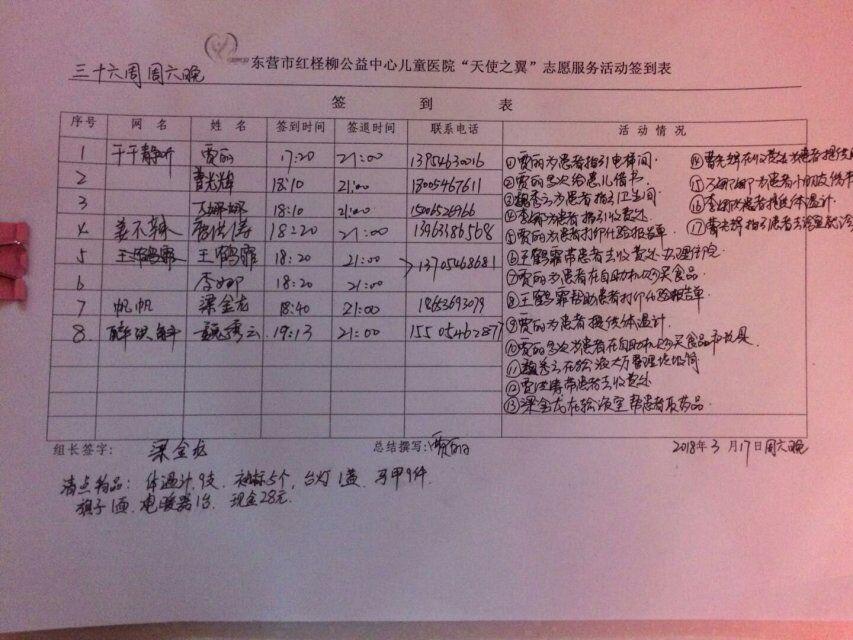 三十六周周六晚
东营市红柽柳公益中心儿童医院“天使之翼”志愿服务活动签到表
签 到 表
序号 网名 姓名 签到时间 签退时间 联系电话 活动情况
1 平平静听 贾丽 17:20 21:00 13954630016
2 曹光辉 18:10 21:00 18005467611
3 18:10 21:00
4 18:20 21:00 13963186568
5 王鹤霏 王鹤霏 18:20 21:00 13705468681
6 李娜 18:20 21:00
7 帆帆 梁金龙 18:40 21:00 18653693079
8. 魏秀云 19:13 21:00 15505462877
①贾丽为患者指引电梯间.
②贾丽多次给患儿借书.
③魏秀云为患者指引卫生间
④李娜为患者指引收费处.
⑤贾丽为患者打印化验报告单.
⑥王鹤霏带患者去收费处办理住院
⑦贾丽为患者在自助机购买食品
⑧王鹤霏帮助患者打印化验报告单
⑨贾丽为患者提供体温计.
⑩贾丽多次为患者在自助机购买食品和玩具.
⑪魏秀云在输液大厅整理垃圾筒
⑫带患者去收费处
⑬梁金龙在输液室帮患者取药品
⑭曹光辉在收费处为患者提供
⑮为患者
⑯李娜为患者提供体温计
⑰曹光辉指引患者去
组长签字: 梁金龙 总结撰写: 贾丽 2018年3月17日周六晚
清点物品: 体温计9支. 袖标5个, 台灯1盏. 马甲9件
旗子1面. 电暖器1台. 现金28元.